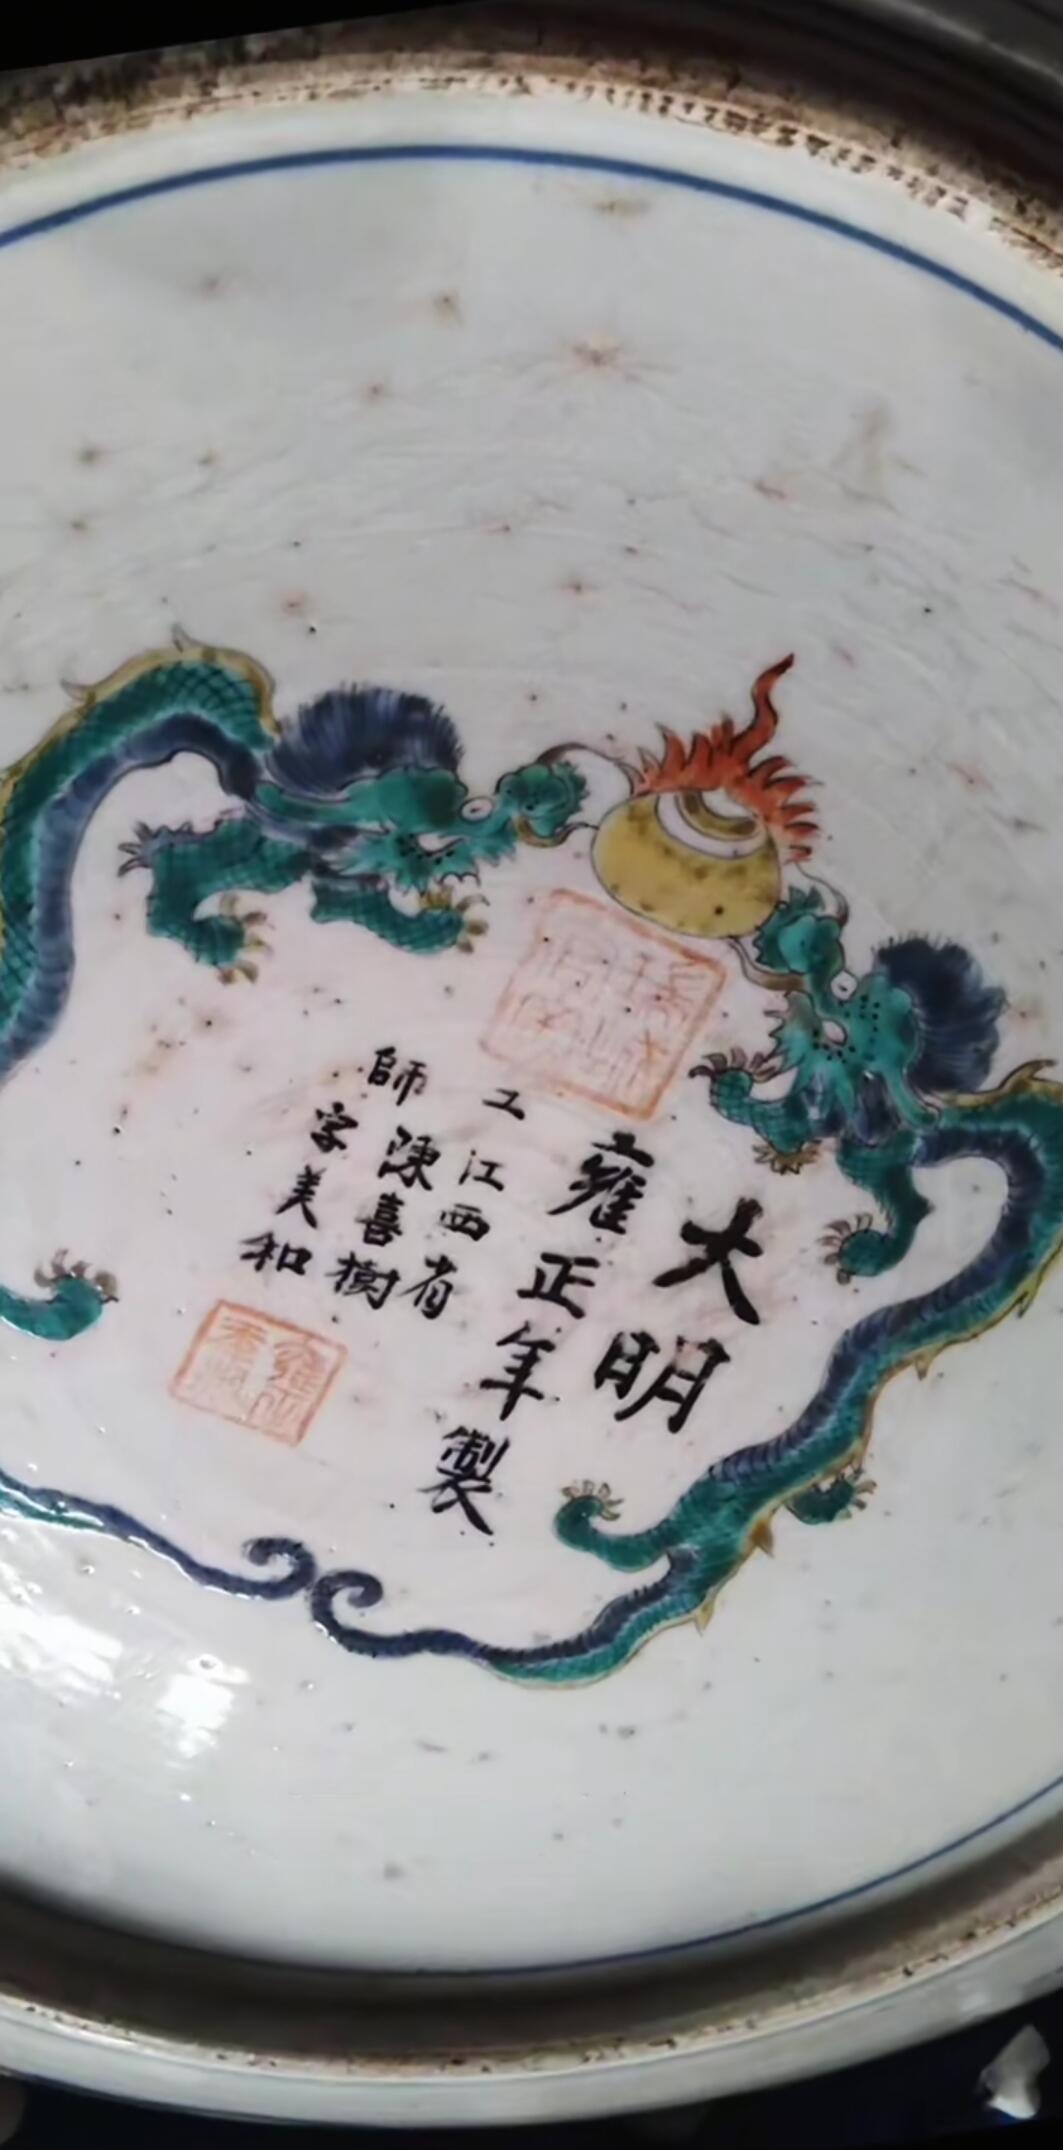 大明
雍正年製
江西省工
師陳喜樹
字美和